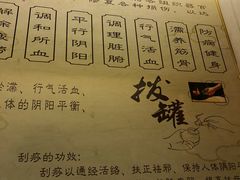 调和所血
平行阴阳
调理脏腑
行气活血
濡养筋骨
防病健身
瘀滞、行气活血、
人体的阴阳平衡、
拨罐
刮痧的功效：
刮痧以通经活络、扶正祛邪、保持人体阴阳